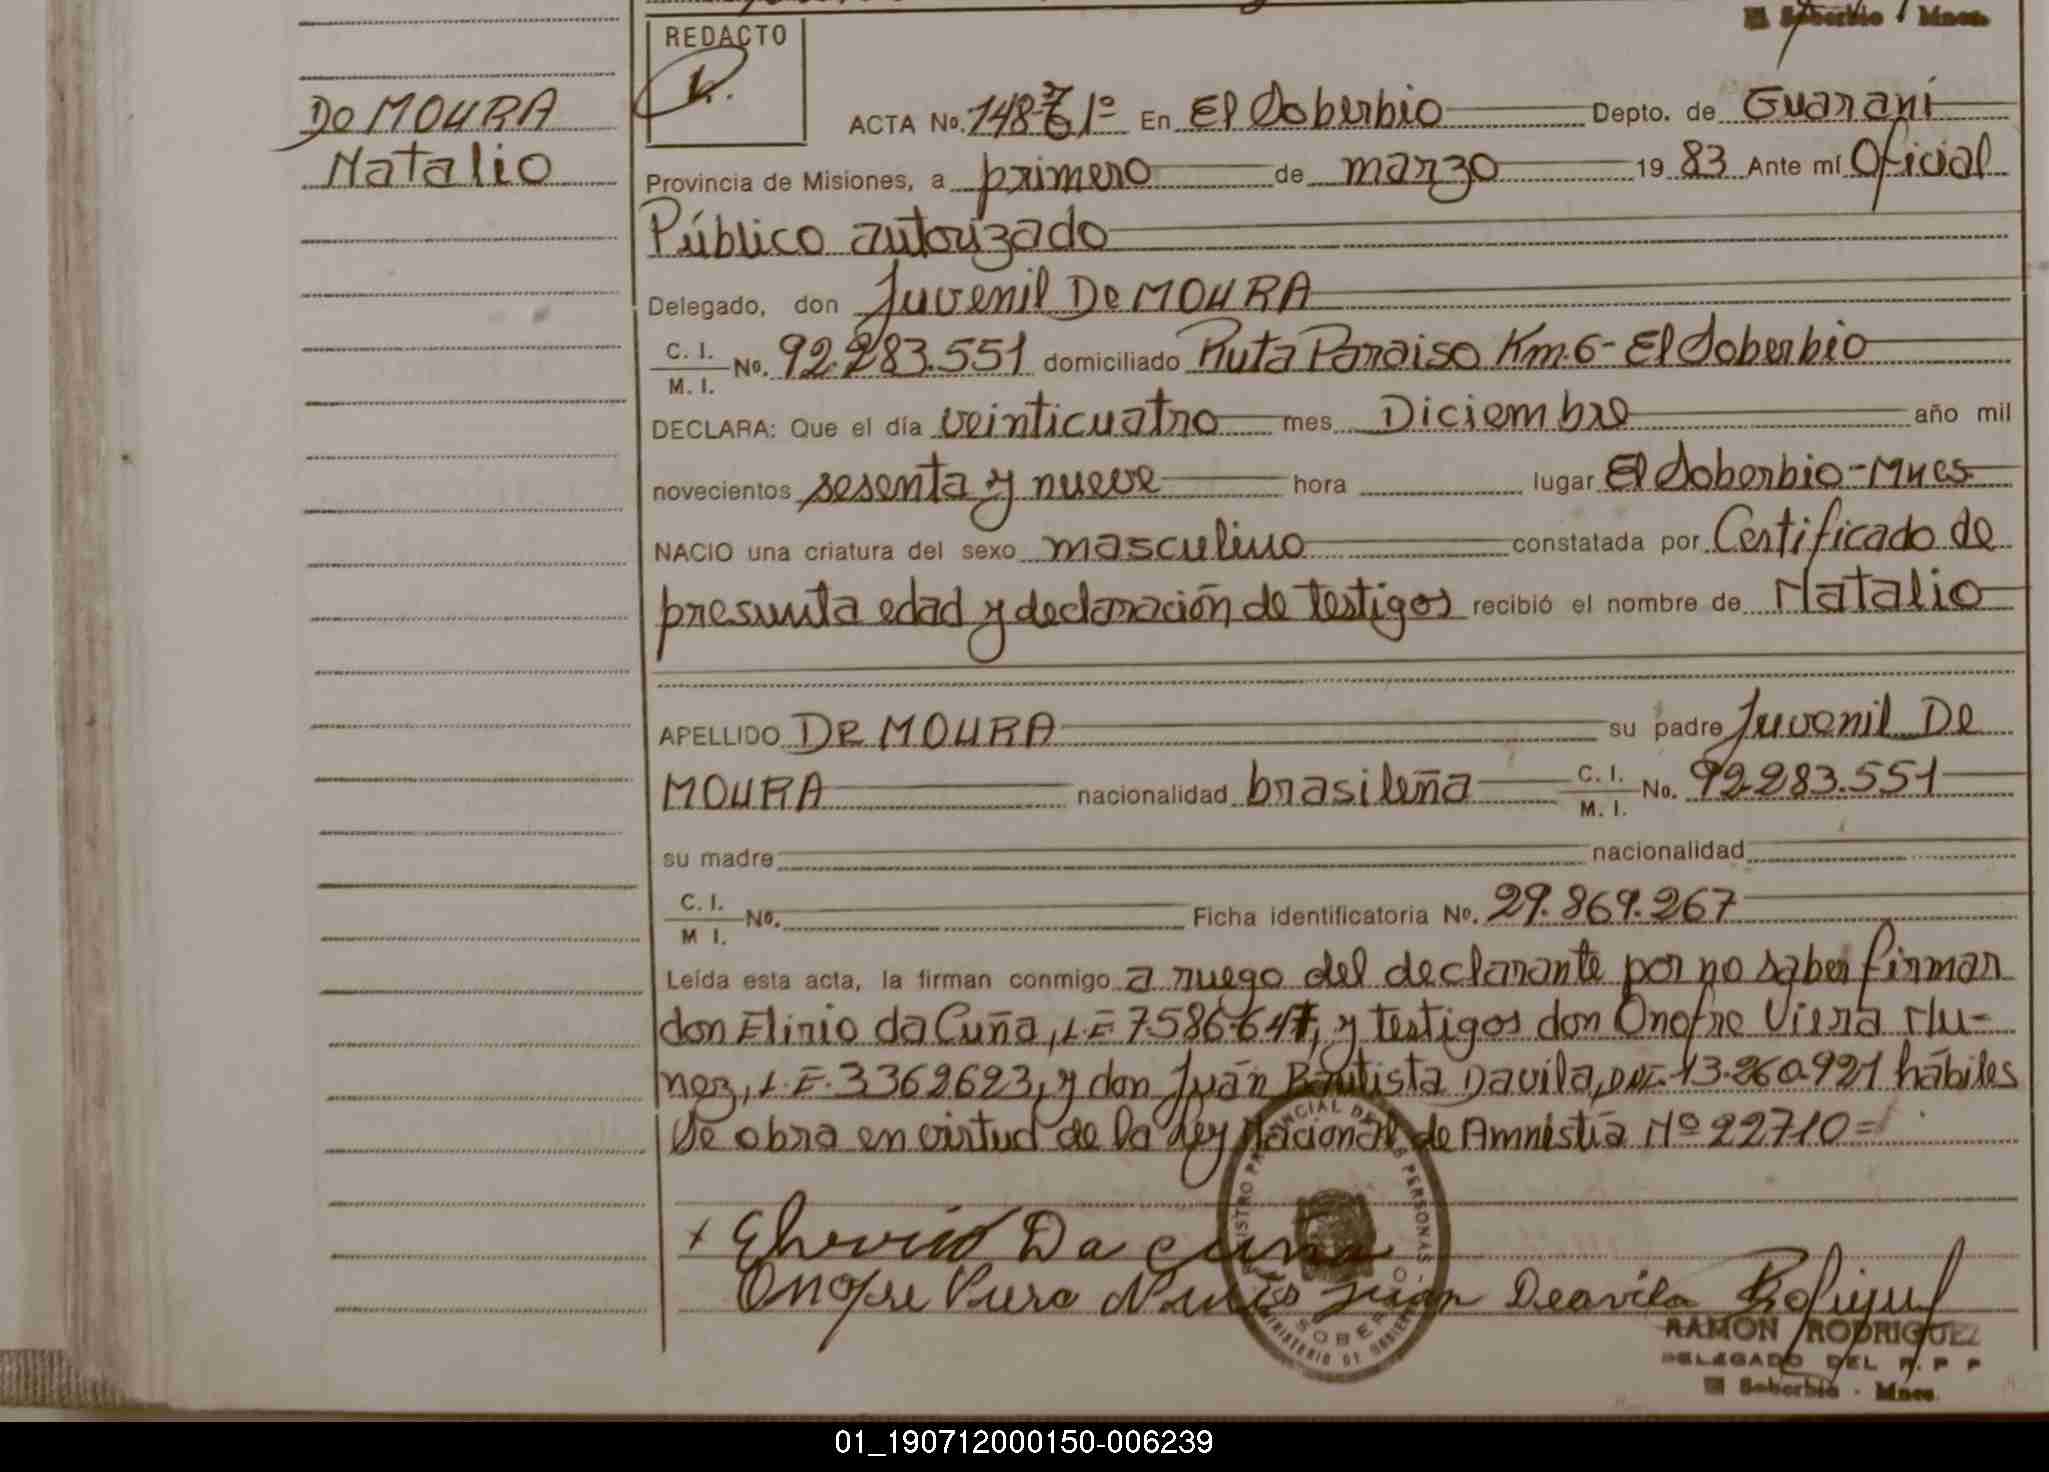 El Soberbio - Mnes.
REDACTO
ACTA No. 148 T 1º En El Soberbio Depto. de Guaraní
DO MOURA
Natalio
Provincia de Misiones, a primero de marzo 19 83 Ante mí Oficial
Público autorizado
Delegado, don Juvenil De MOURA
C. I. / M. I. No. 92.283.551 domiciliado Ruta Paraiso Km.6- El Soberbio
DECLARA: Que el día veinticuatro mes Diciembre año mil
novecientos sesenta y nueve hora lugar El Soberbio-Mnes
NACIO una criatura del sexo masculino constatada por Certificado de
presunta edad y declaración de testigos recibió el nombre de Natalio
APELLIDO DE MOURA su padre Juvenil De
MOURA nacionalidad brasileña C. I. / M. I. No. 92.283.551
su madre nacionalidad
C. I. / M I. No. Ficha identificatoria No. 29.869.267
Leída esta acta, la firman conmigo a ruego del declarante por no saber firmar
don Elirio da Cuña, L.E 7.586.647, y testigos don Onofre Viera Nu-
nez, L.E. 3362623, y don Juán Bautista Davila, DNI. 13.260.921 hábiles
Se obra en virtud de la Ley Nacional de Amnistía Nº 22710=
x Elirio Da cuna
Onofre Viera Nunes Juan Deavila
SOBERBIO
RAMON RODRIGUEZ
DELEGADO DEL R. P P
El Soberbio - Mnes.
01_190712000150-006239